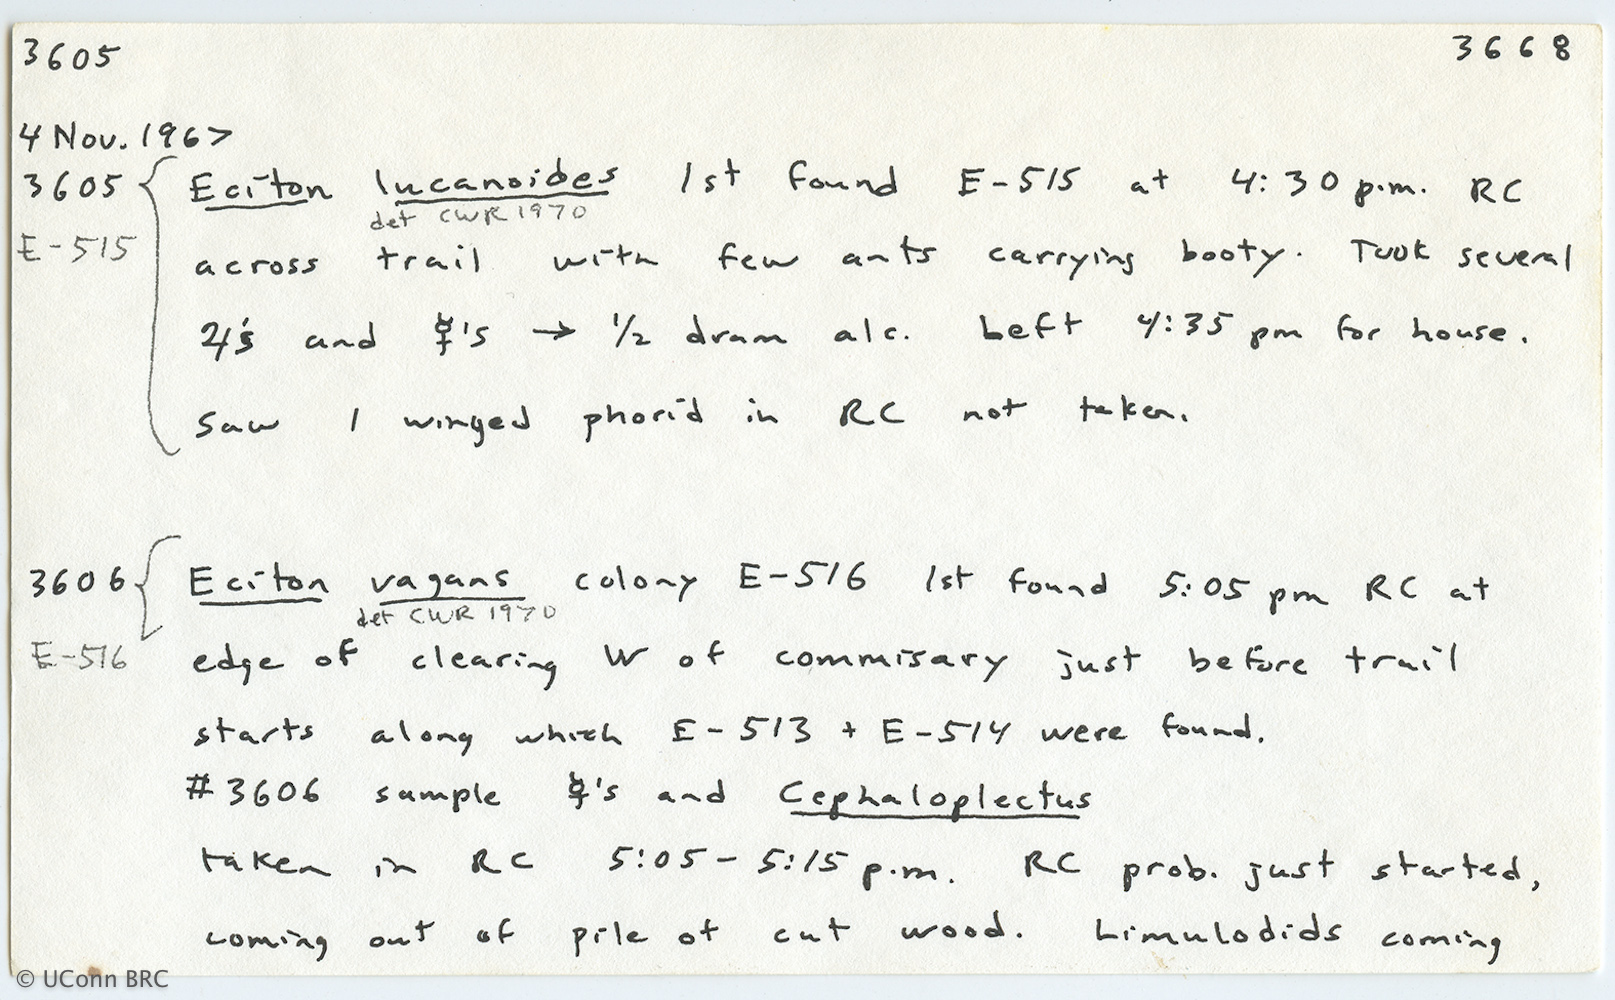 3605 3668
4 Nov. 1967
3605 Eciton lucanoides 1st found E-515 at 4:30 p.m. RC
det CWR 1970
E-515 across trail with few ants carrying booty. Took several
♃'s and ☿'s → 1/2 dram alc. Left 4:35 pm for house.
Saw 1 winged phorid in RC not taken.
3606 Eciton vagans colony E-516 1st found 5:05 pm RC at
det CWR 1970
E-516 edge of clearing W of commisary just before trail
starts along which E-513 + E-514 were found.
#3606 sample ☿'s and Cephaloplectus
taken in RC 5:05-5:15 p.m. RC prob. just started,
coming out of pile of cut wood. Limulodids coming
© UConn BRC